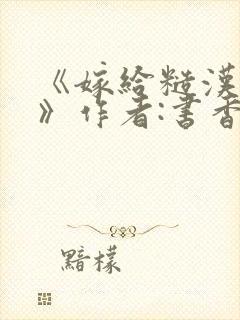 《嫁给糙漢
》作者:書香
黯檬